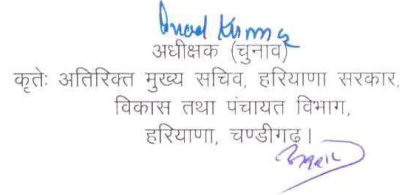 अधीक्षक (चुनाव)
कृतेः अतिरिक्त मुख्य सचिव, हरियाणा सरकार,
विकास तथा पंचायत विभाग,
हरियाणा, चण्डीगढ़।